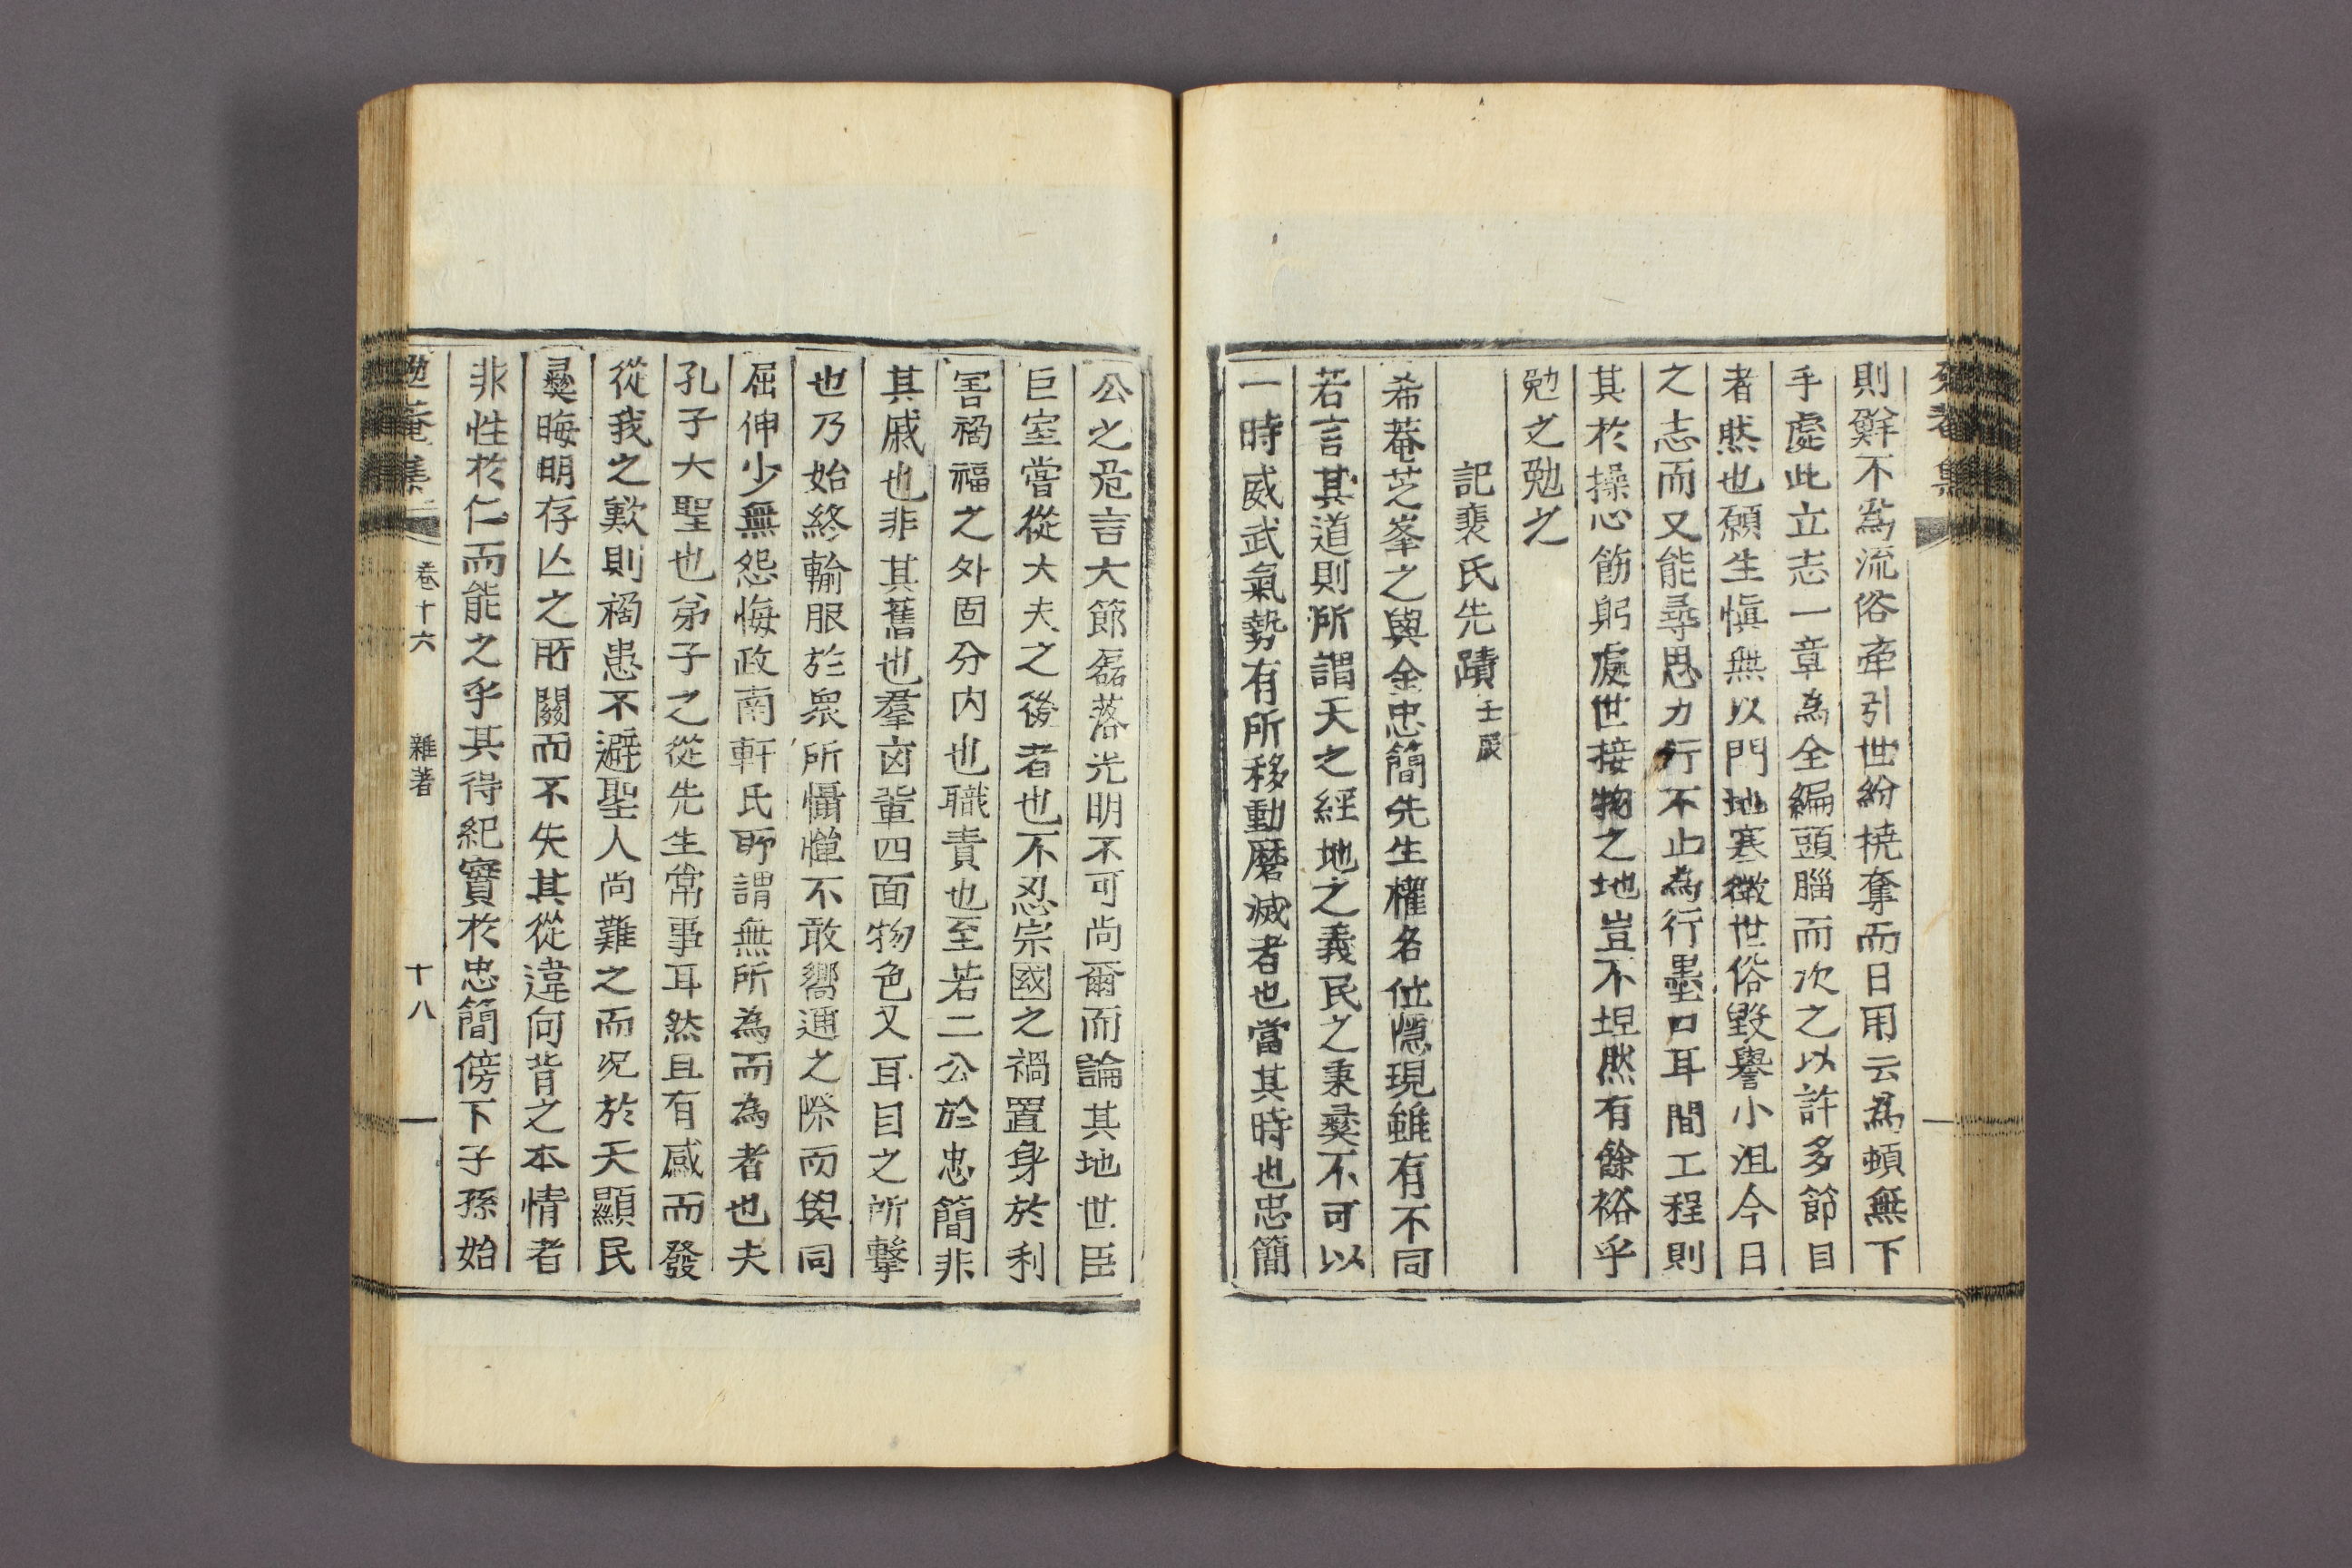 則鮮不爲流俗牽引世紛撓奪而日用云爲頓無下
手處此立志一章為全編頭腦而次之以許多節目
者然也願生愼無以門地寒微世俗毀譽小沮今日
之志而又能尋思力行不止為行墨口耳間工程則
其於操心飭躬處世接物之地豈不坦然有餘裕乎
勉之勉之
記裵氏先蹟 壬辰
希菴芝峯之與金忠簡先生權名位隱現雖有不同
若言其道則所謂天之經地之義民之秉彛不可以
一時威武氣勢有所移動磨滅者也當其時也忠簡
公之危言大節磊落光明不可尚爾而論其地世臣
巨室嘗從大夫之後者也不忍宗國之禍置身於利
害禍福之外固分内也職責也至若二公於忠簡非
其戚也非其舊也羣凶輩四面物色又耳目之所擊
也乃始終輸服於衆所懾憚不敢嚮邇之際而與同
屈伸少無怨悔政南軒氏所謂無所為而為者也夫
孔子大聖也弟子之從先生常事耳然且有感而發
從我之歎則禍患不避聖人尚難之而况於天顯民
彛晦明存亾之所關而不失其從違向背之本情者
非性於仁而能之乎其得紀實於忠簡傍下子孫始
勉菴集 卷十六 雜著 十八